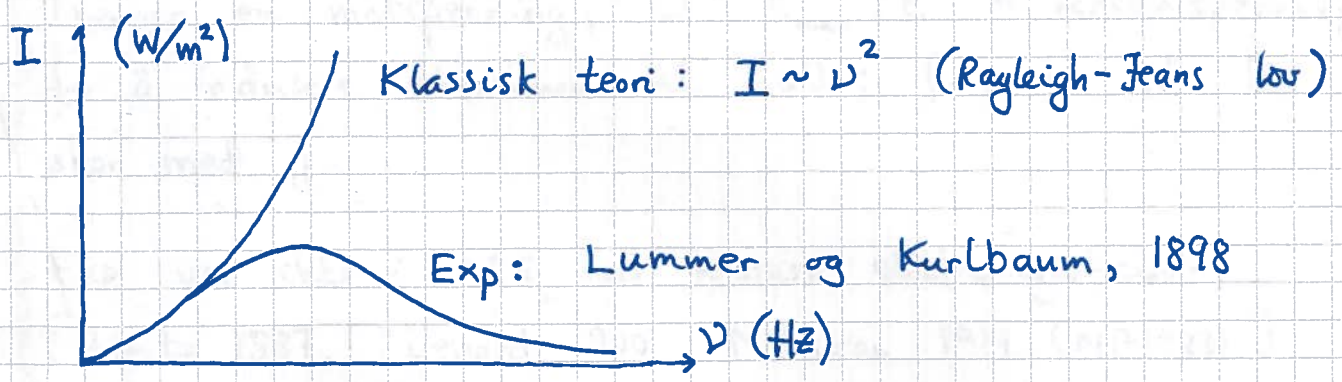 I (W/m²)
Klassisk teori: I ~ ν² (Rayleigh-Jeans lov)
Exp: Lummer og Kurlbaum, 1898
ν (Hz)